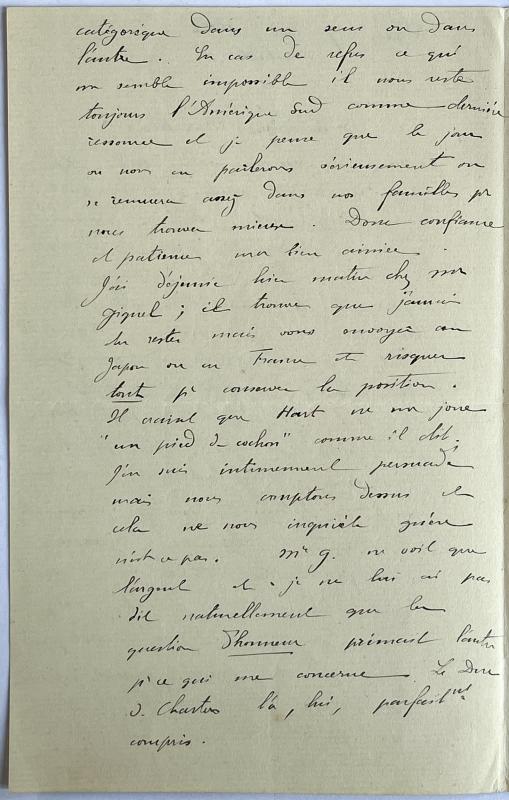 catégorique dans un sens ou dans
l'autre. En cas de refus ce qui
me semble impossible il nous reste
toujours l'Amérique Sud comme dernière
ressource et je pense que le jour
où nous en parlerons sérieusement on
se remuera assez dans nos familles pr
nous trouver mieux. Donc confiance
et patience ma bien aimée.
J'ai déjeuné hier matin chez Mr
Giquel ; il trouve que j'aurais
dû rester mais vous envoyer au
Japon ou en France et risquer
tout pr conserver la position.
Il craint que Hart ne me joue
"un pied de cochon" comme il dit.
J'en suis intimement persuadé
mais nous comptons dessus et
cela ne nous inquiète guère
n'est ce pas. Mr G. ne voit que
l'argent et je ne lui ai pas
dit naturellement que la
question d'honneur primait l'autre
pr ce qui me concerne. Le Duc
d. Chartres l'a, lui, parfaitmt
compris.